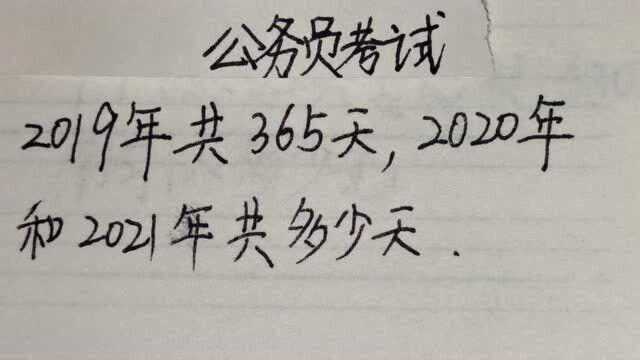 公务员考试
2019年共365天，2020年
和2021年共多少天．